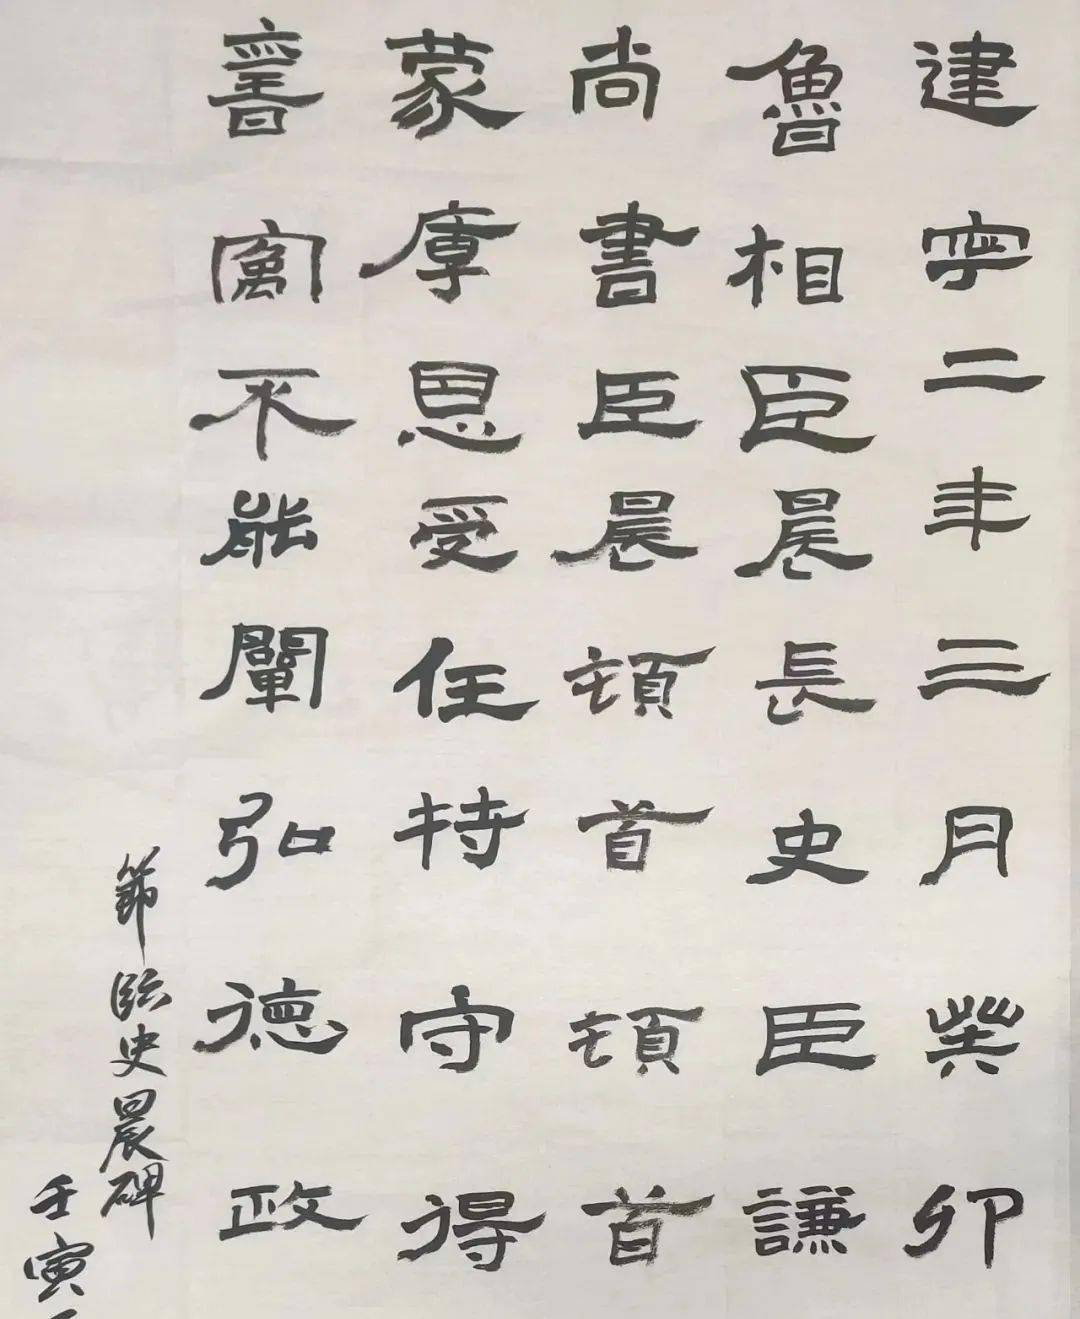 建寧二年三月癸卯
魯相臣晨長史臣謙
尚書臣晨頓首頓首
蒙厚恩受任持守得
寓不能闡弘德政
節臨史晨碑
壬寅